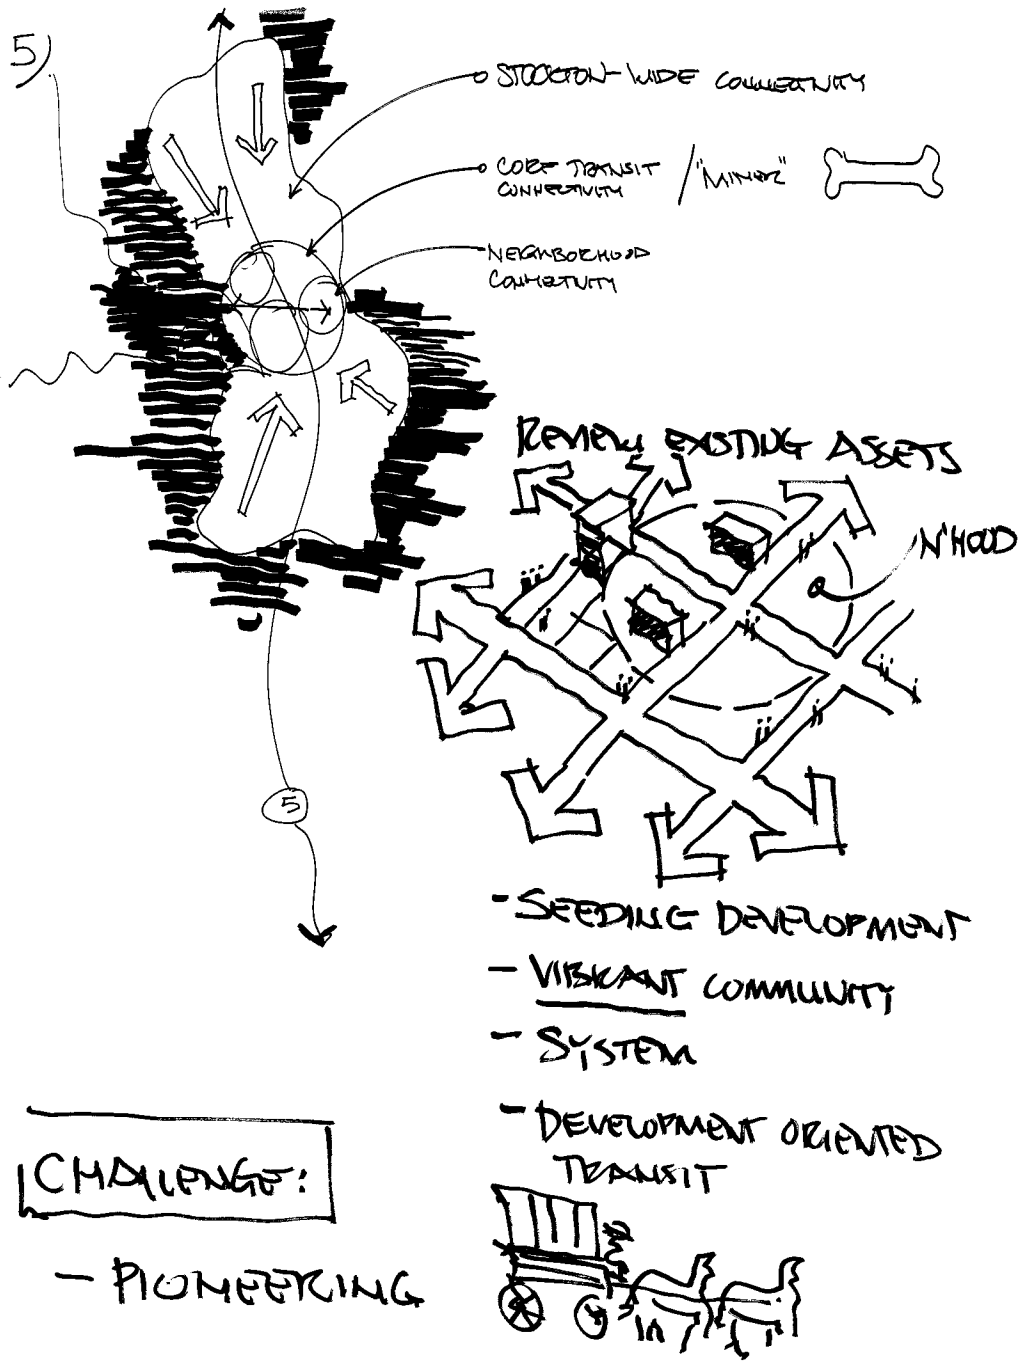 5)
STOCKTON-WIDE CONNECTIVITY
CORE TRANSIT
CONNECTIVITY
/"MINOR"
NEIGHBORHOOD
CONNECTIVITY
REVIEW EXISTING ASSETS
N'HOOD
5
- SEEDING DEVELOPMENT
- VIBRANT COMMUNITY
- SYSTEM
- DEVELOPMENT ORIENTED
TRANSIT
CHALLENGE:
- PIONEERING